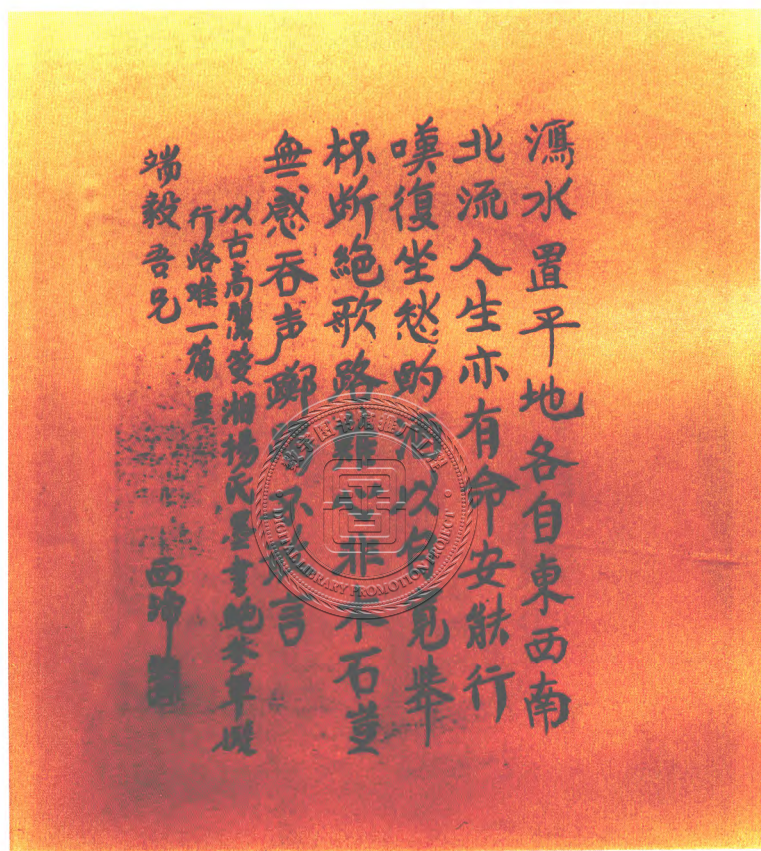 瀉水置平地各自東西南
北流人生亦有命安能行
嘆復坐愁酌酒以自寬舉
杯斷絕歌路難心非木石豈
無感吞声躑躅不敢言
以古高麗發湘楊氏墨書鮑參軍擬
行路難一篇呈
端毅吾兄
西沖
DIGITAL LIBRARY PROMOTION PROJECT